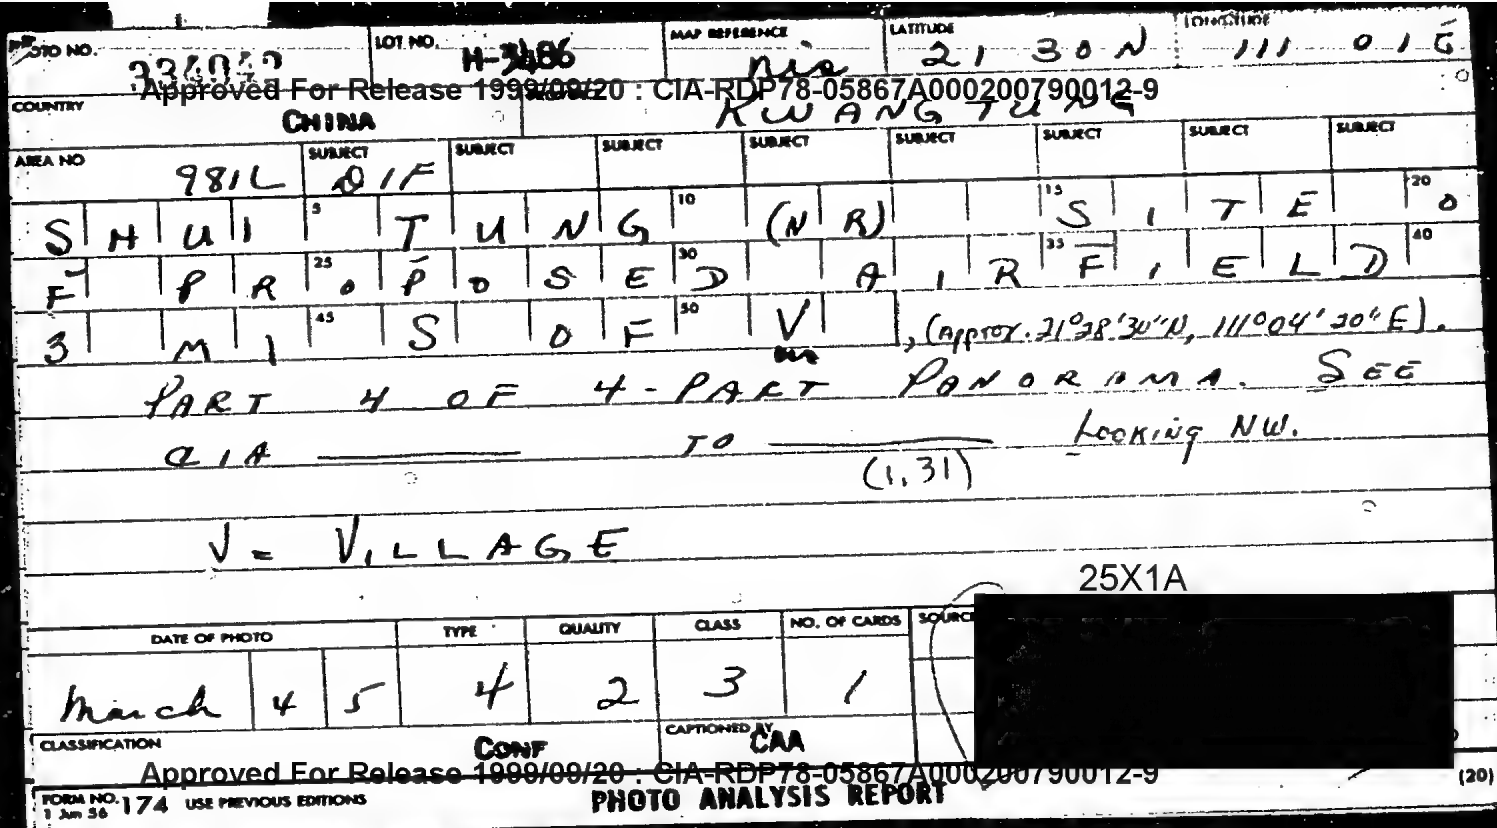 PHOTO NO. LOT NO. H-3486 MAP REFERENCE LATITUDE 21 30 N LONGITUDE 111 01 E
Approved For Release 1999/09/20 : CIA-RDP78-05867A000200790012-9
COUNTRY CHINA KWANGTUNG
AREA NO 981L SUBJECT 01F SUBJECT SUBJECT SUBJECT SUBJECT SUBJECT SUBJECT SUBJECT
SHUI 5 TUNG 10 (NR) 15 SITE 20 O
F PR 25 OPOSED 30 AIR 35 FIELD 40
3 MI 45 S OF 50 V , (Approx. 21°28'30"N, 111°04'20"E).
PART 4 OF 4-PART PANORAMA. SEE
CIA TO Looking NW.
(1,31)
V = VILLAGE
25X1A
DATE OF PHOTO TYPE QUALITY CLASS NO. OF CARDS SOURCE
March 4 5 4 2 3 1
CLASSIFICATION CONF CAPTIONED BY CAA
Approved For Release 1999/09/20 : CIA-RDP78-05867A000200790012-9
FORM NO. 174 USE PREVIOUS EDITIONS PHOTO ANALYSIS REPORT (20)
1 Jun 56